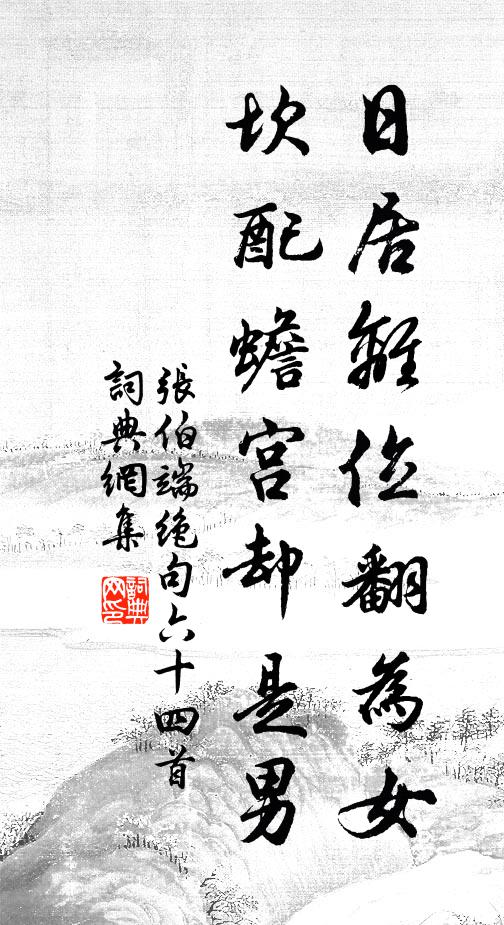 日居離位翻為女
坎配蟾宫却是男
張伯端絶句六十四首
詞典網集
詞典网印